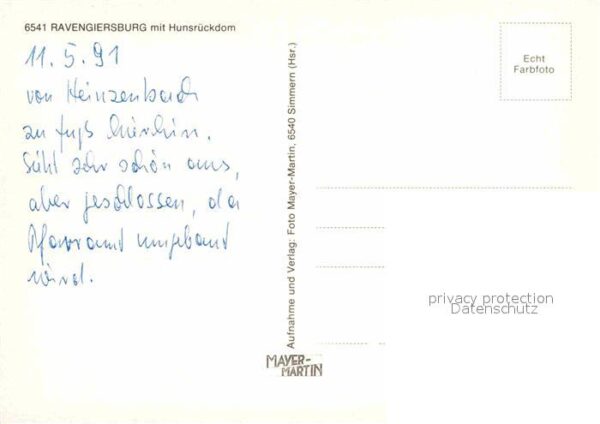 6541 RAVENGIERSBURG mit Hunsrückdom
11.5.91
von Heinzenbach
zu fuß hierhin.
Sieht sehr schön aus,
aber geschlossen, da
Pfarramt umgebaut
wird.
Echt
Farbfoto
Aufnahme und Verlag: Foto Mayer-Martin, 6540 Simmern (Hsr.)
MAYER-
MARTIN
privacy protection
Datenschutz